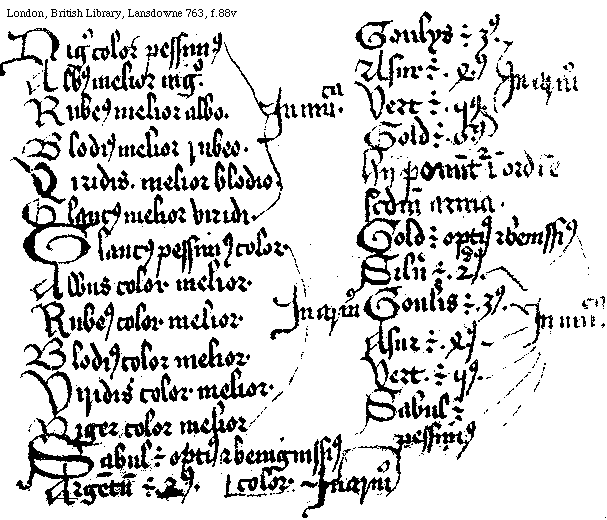 London, British Library, Lansdowne 763, f.88v
Nigꝰ color pessimꝰ
Albꝰ melior nigº
Rubeꝰ melior albo.
Blodiꝰ melior rubeo.
Viridis. melior blodio
Glaucꝰ melior viridi.
Glaucꝰ pessimꝰ color.
Albus color melior.
Rubeꝰ color melior.
Blodiꝰ color melior.
Viridis color melior.
Niger color melior
Sabul ē optiꝰ ⁊ benignissiꝰ
Argētū ē 2ꝰ. color. In armꝭ
In mūca.
In armꝭ
Goulys ē 3ꝰ
Asur ē
Vert ē
Gold ē
In armꝭ
ordīe
scdm arma.
Gold ē optiꝰ ⁊ benissiꝰ
Silū ē 2ꝰ
Goulis ē 3ꝰ
Asur ē
Vert. ē
Sabul ē
pessimꝰ
In mūca